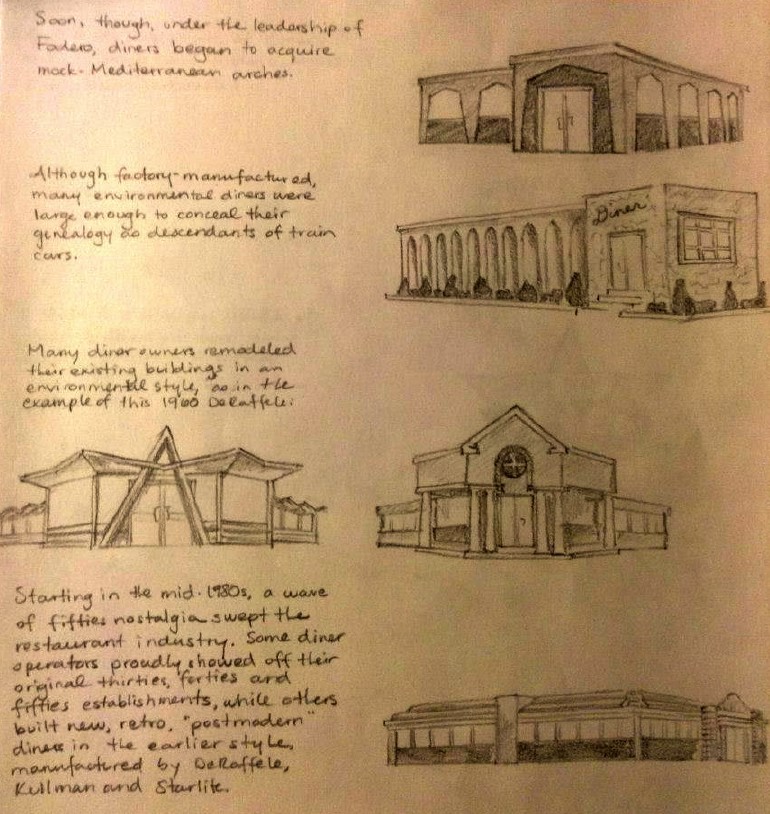 Soon, though, under the leadership of
Fodero, diners began to acquire
mock-Mediterranean arches.
Although factory-manufactured,
many environmental diners were
large enough to conceal their
genealogy as descendants of train
cars.
Diner
Many diner owners remodeled
their existing buildings in an
environmental style, as in the
example of this 1960 DeRaffele:
Starting in the mid-1980s, a wave
of fifties nostalgia swept the
restaurant industry. Some diner
operators proudly showed off their
original thirties, forties and
fifties establishments, while others
built new, retro, "postmodern"
diners in the earlier style,
manufactured by DeRaffele,
Kullman and Starlite.